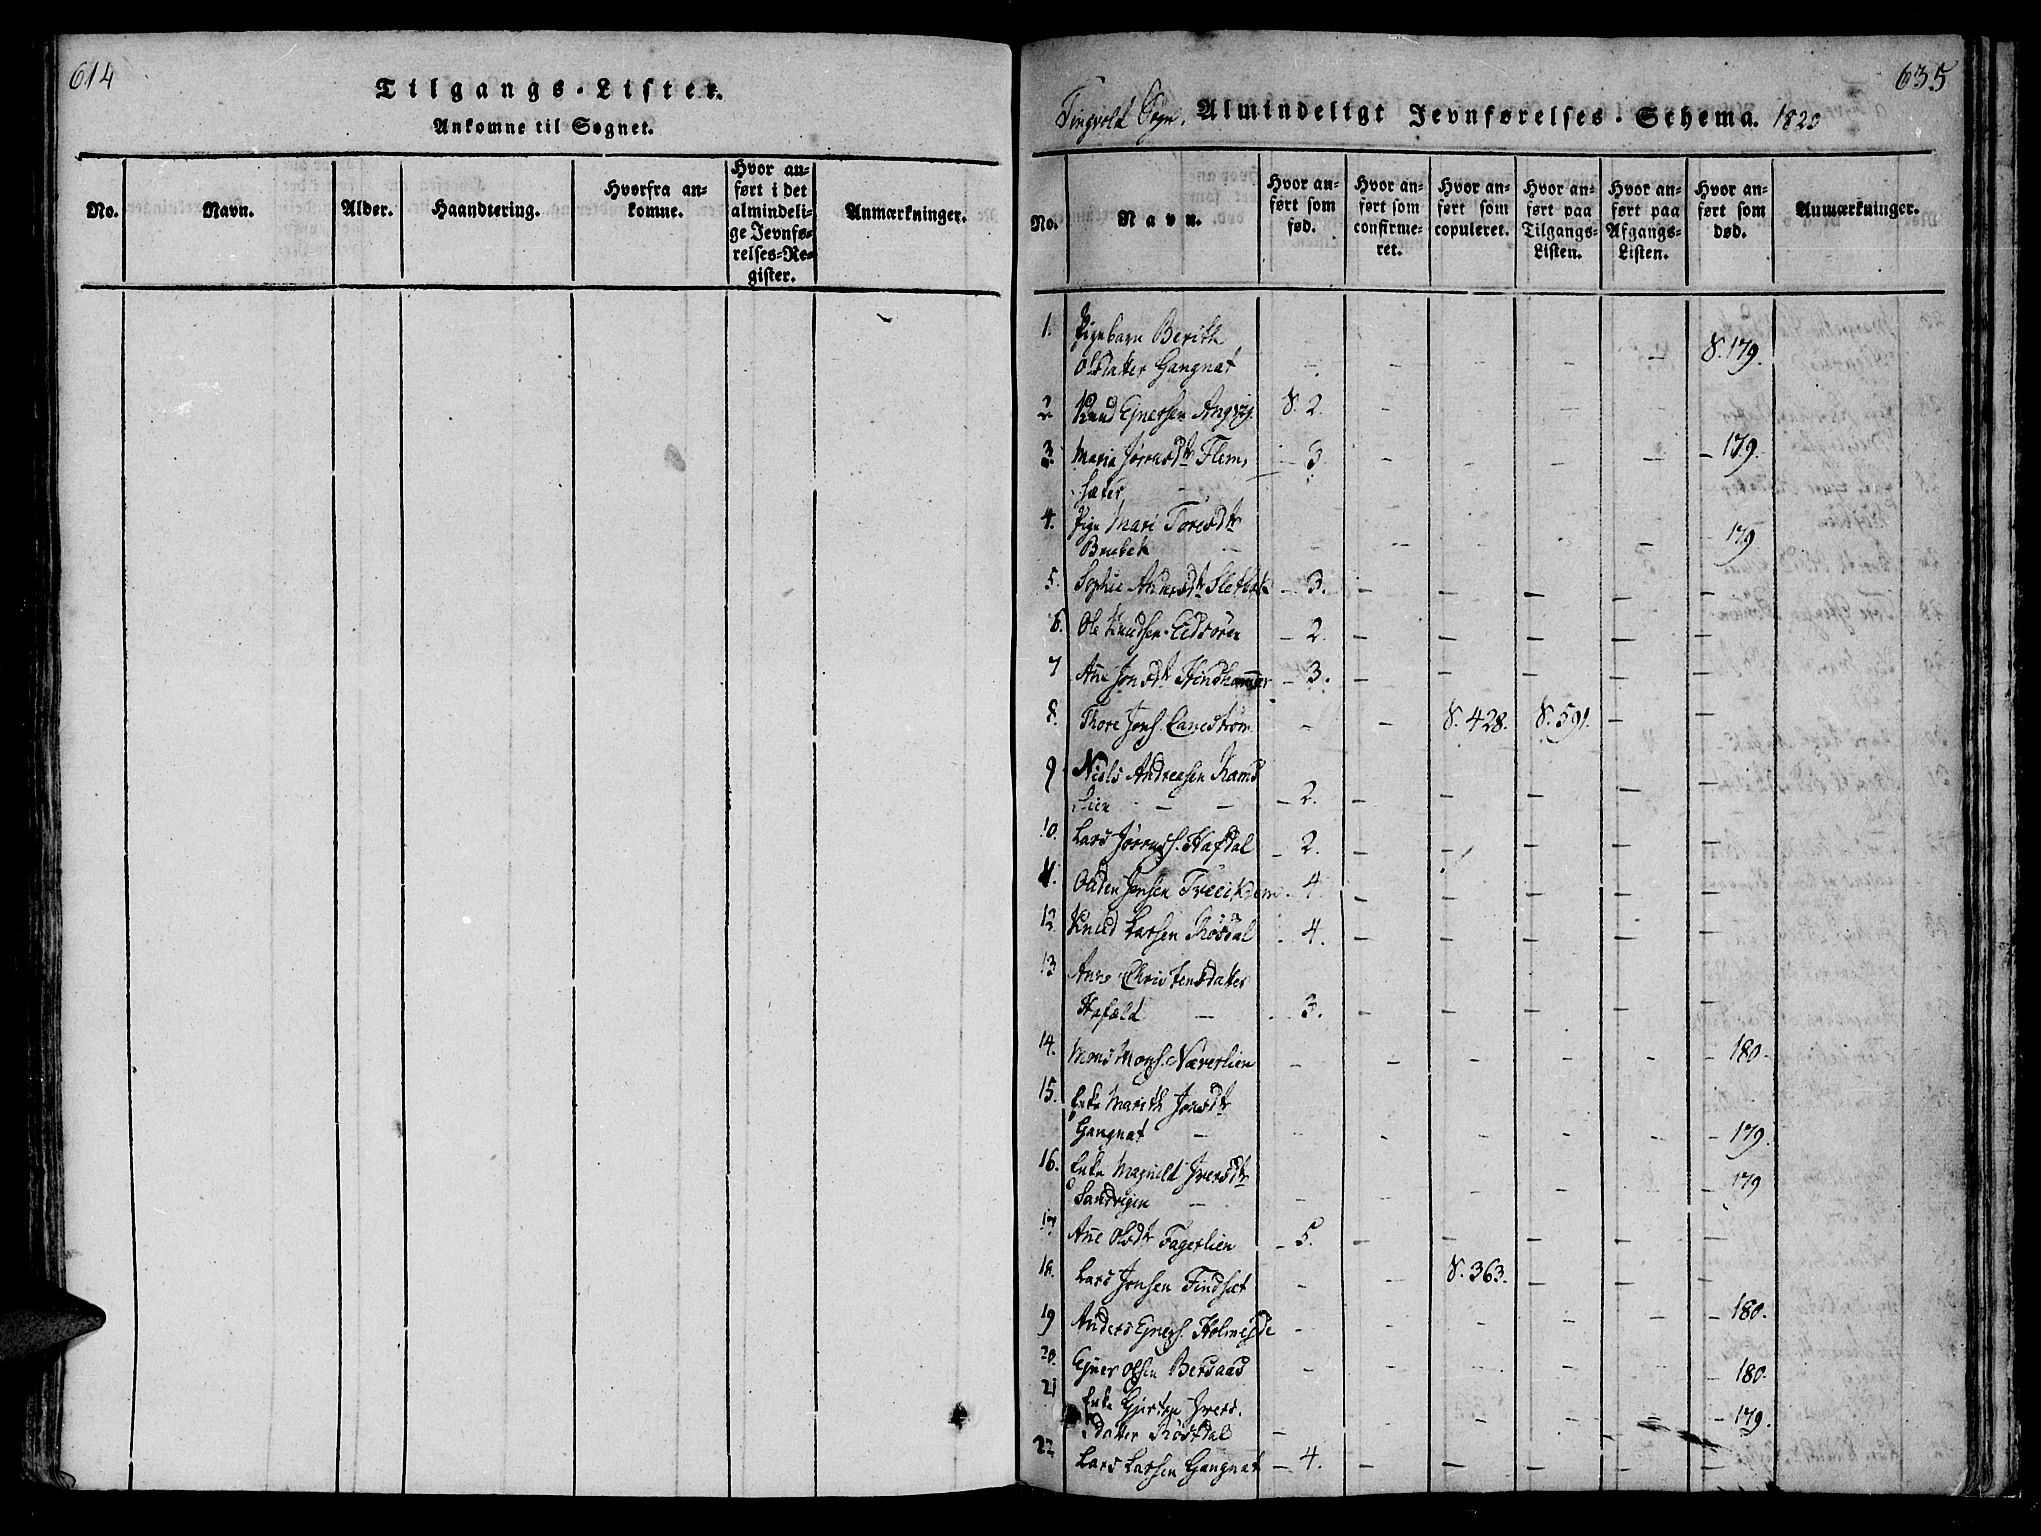 614
Tilgangs-Lister.
Ankomne til Sognet.
No. Navn. Alder. Haandtering. Hvorfra ankomne. Hvor anført i det almindelige Jevnførelses-Register. Anmærkninger.
635
Tingvold Sogn. Almindeligt Jevnførelses-Schema. 1820
No. Navn. Hvor anført som fød. Hvor anført som confirmeret. Hvor anført som copuleret. Hvor anført paa Tilgangs-Listen. Hvor anført paa Afgangs-Listen. Hvor anført som død. Anmærkninger.
1. Pigebarn Berith
Olsdatter Gangnat - - - - - S. 179.
2. Knud Ejnersen Angvig S. 2. - - -
3. Maria Jørrusdtr Flem- - 3 - - - - - 179.
sæter
4. Pige Mari Toresdtr
Brubek - - - - - - 179
5. Sophie Andersdtr Sletbak - 3. - - - - -
6. Ole Knudsen Eidsøren - 2. - - - - -
7 Ane Jonsdtr Hindhammer - 3. - - - - -
8. Thore Jons. - - S. 428. S. 591. - -
9 Niels Andreasen Rams
Lien - - - 2. - - - - -
10. Lars Jørruss. Hafdal - 2. - - - - -
11. Oden Jensen - 4. - - - - -
12 Knud Larsen Røsdal - 4. - - - - -
13 Ane Christensdatter
Hafæld - - 3. - - - - -
14. Mons Mons. Næverlien - - - - - - 180.
15. Enke Marith Jonsdtr
Gangnat - - - - - - 179.
16. Enke Magnild Iversdtr
Sandvigen - - - - - - 179
17 Ane Olsdtr Fagerlien - 5. - - - - -
18. Lars Jonsen Findsæt - - S. 363. - - -
19 Anders Ejners. Holmejde - - - - - - 180.
20. Ejner Olsen Bersaas - - - - - 180.
21 Enke Gjertru Ivers-
datter Røstdal - - - - - 179.
22 Lars Larsen Gangnat - 4. - - - - -